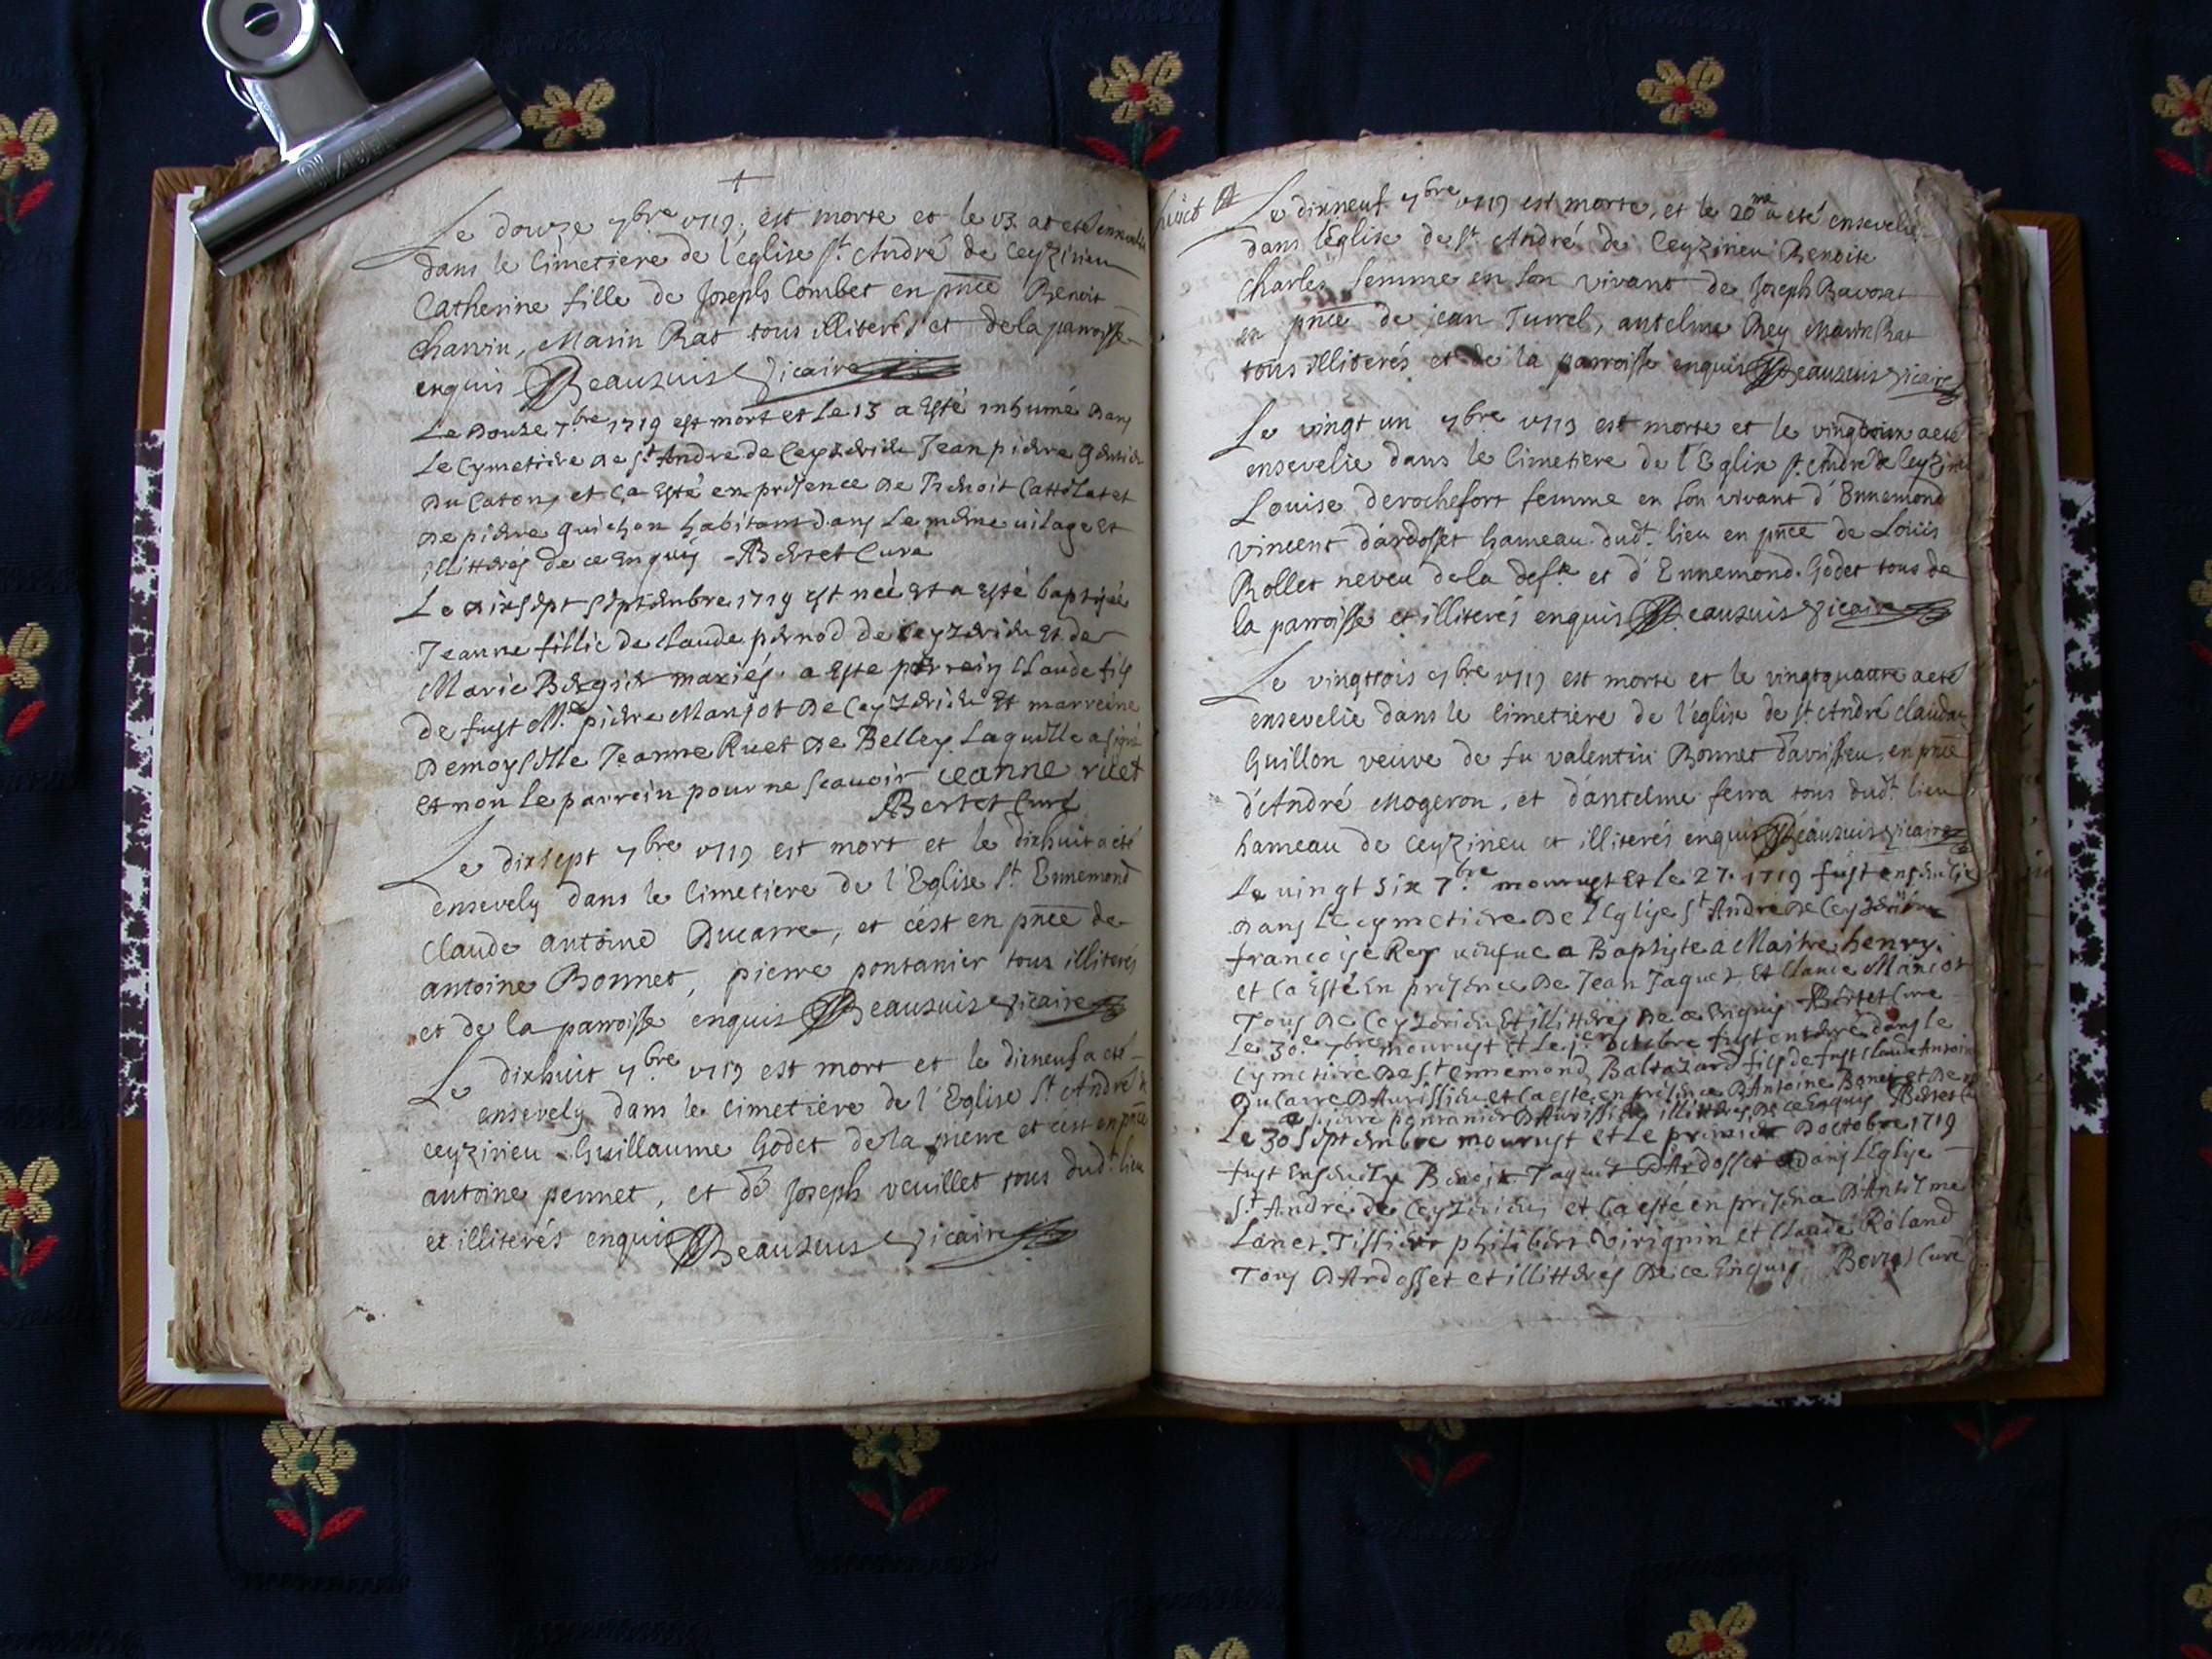 Le douze 7bre 1719, est morte et le 13 at eté ensevelie
dans le Cimetiere de l'église St. André de Ceyzirieu
Catherine fille de Joseph Combet en pnce Benoit
Charvin, Marin Rat tous illiterés et de la parroisse
enquis Beauzuis Vicaire
Le Douze 7bre 1719 est mort et Le 13 a Esté inhumé Dans
Le Cymetiere de St Andre de Ceyzerieu Jean pierre
Du Caton, et ca Esté en presence De Benoit Cattilat et
De pierre Guichon habitans dans Le meme vilage et
illitteres de ce Enquis Bertet Curé
Le dixsept Septembre 1719 est neé Et a Esté baptisée
Jeanne fillie de claude pernod de Ceyzerieu Et de
Marie Bergier mariés, a Este parrein Claude fils
de fust Mre pierre Marjot De Ceyzerieu Et marreine
Demoyselle Jeanne Ruet De Belley Laquelle a signé
Et non Le parrein pour ne scavoir ceanne ruet
Bertet Curé
Le dixsept 7bre 1719 est mort et le dixhuit a eté
ensevely dans le Cimetiere de l'Eglise St. Ennemond
Claude antoine Ducarre, et c'est en pnce de
antoine Bonnet, pierre pontanier tous illiterés
et de la parroisse enquis Beauzuis Vicaire
Le dixhuit 7bre 1719 est mort et le dixneuf a eté
ensevely dans le Cimetiere de l'Eglise St André de
ceyzirieu Guillaume Godet de la pierre et c'est en pnce
antoine pennet, et de Joseph veuillet tous dudt. lieu
et illiterés enquis Beauzuis Vicaire
Le dixneuf 7bre 1719 est morte, et le 20me a eté ensevelie
dans l'Eglise de St. André de Ceyzirieu Benoite
Charles femme en son vivant de Joseph Ravorat
en pnce de jean Turrel, antelme Rey Marin Rat
tous illiterés et de la parroisse enquis Beauzuis Vicaire
Le vingt un 7bre 1719 est morte et le vingtdeux a eté
ensevelie dans le Cimetiere de l'Eglise St. André de Ceyzirieu
Louise derochefort femme en son vivant d'Ennemond
vincent d'ardosset hameau dudt. lieu en pnce de Louis
Rollet neveu de la defte et d'Ennemond Godet tous de
la parroisse et illiterés enquis Beauzuis Vicaire
Le vingttrois 7bre 1719 est morte et le vingtquattre a eté
ensevelie dans le Cimetiere de l'église de St. André claudine
Guillon veuve de fu valentin Bonnet d'avrissieu, en pnce
d'André Mogeron, et d'antelme ferra tous dudt. lieu
hameau de ceyzirieu et illiterés enquis Beauzuis Vicaire
Le vingt six 7bre mourust Et Le 27. 1719 fust ensevelie
Dans Le cymetiere De L'Eglise St Andre De Ceyzerieu
francoise Rey veufue a Baptiste a Maitre henry,
et ca Esté En presence De Jean Jaquet Et Claude Marjot
Tous De Ceyzerieu Et illitteres De ce Enquis Bertet Curé
Le 30e 7bre mourust Et Le 1er octobre fust enterré dans le
Cymetiere De St ennemond Baltazard fils de fust Claude Antoine
Du Carre D'Avrissieu et ca esté en presence D'Antoine Bonet et De
pierre pontanier D'Avrissieu illitteres De ce Enquis Bertet
Le 30 Septembre mourust et Le premier D'octobre 1719
fust Ensevely Benoit Jaquet D'Ardosset Dans L'Eglise
St. André de Ceyzerieu et ca esté en presence D'Antelme
Lanet, Tissier philibert Virignin et Claude Roland
Tous D'Ardosset et illitteres De ce Enquis Bertet Curé